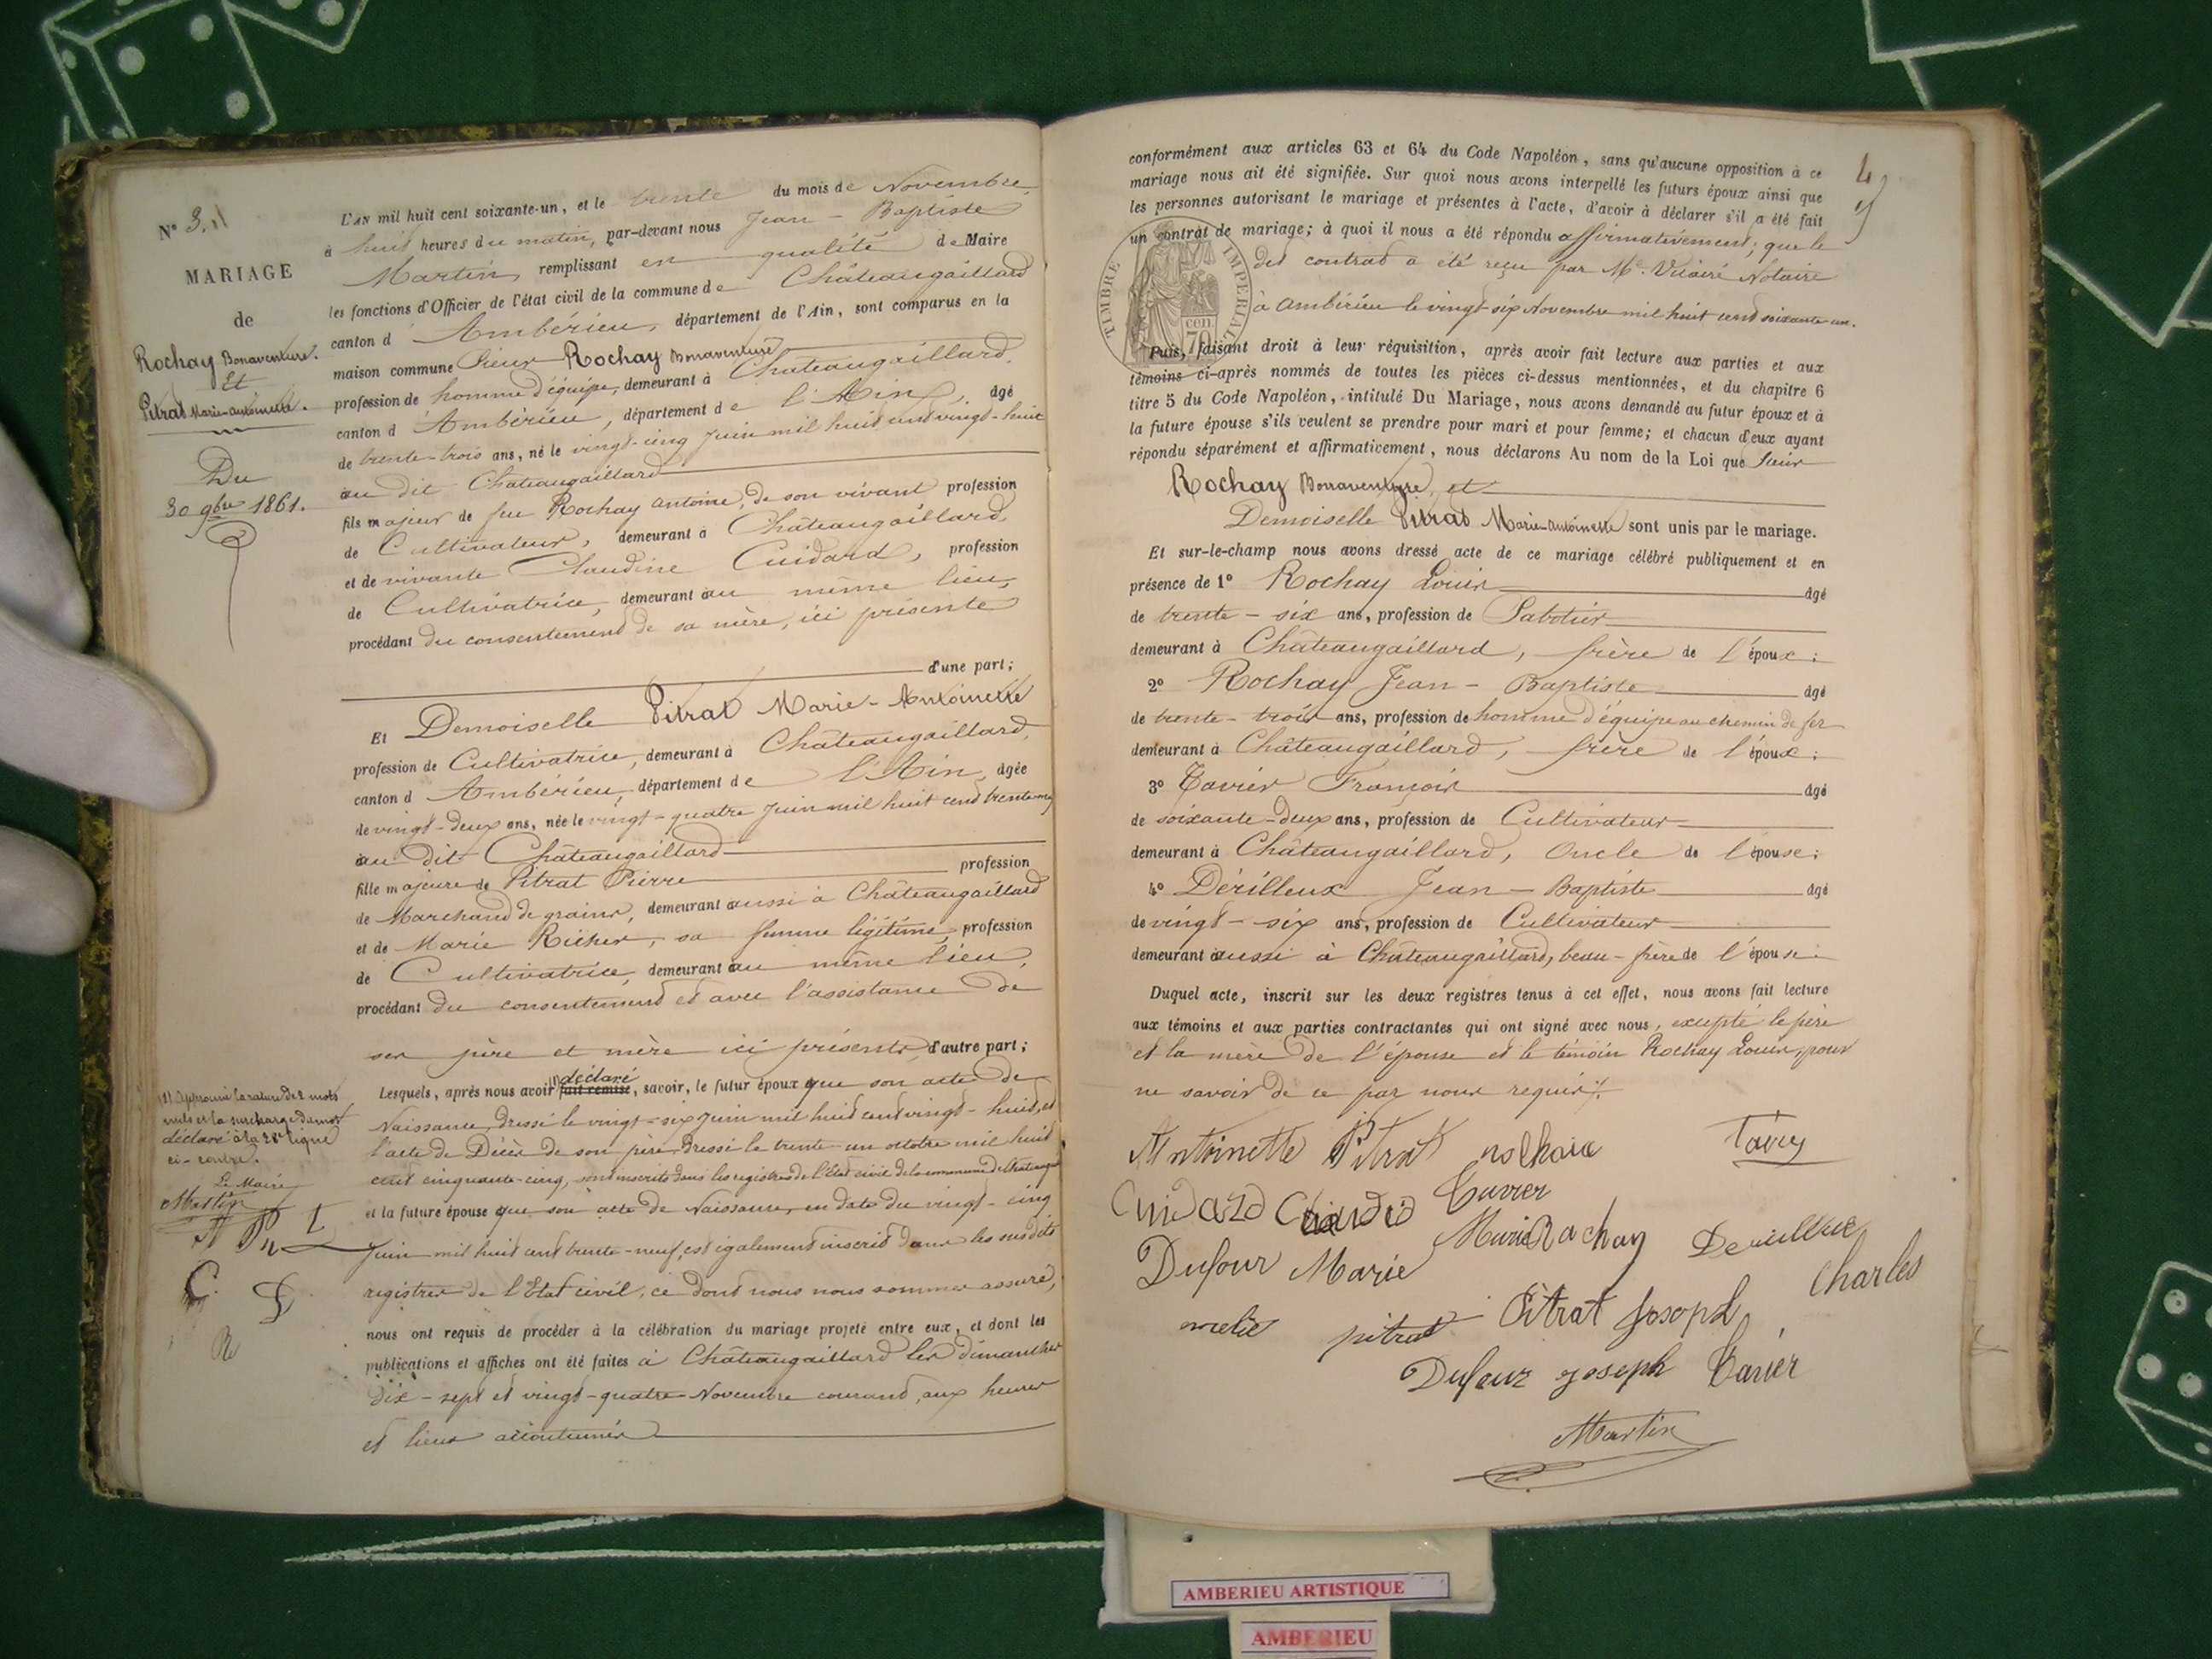 N° 3.
MARIAGE
de
Rochay Bonaventure.
Et
Pitrat Marie-Antoinette.
Du
30 9bre 1861.
L'AN mil huit cent soixante-un, et le trente du mois de Novembre
à huit heures du matin, par-devant nous Jean-Baptiste
Martin, remplissant en qualité de Maire
les fonctions d'Officier de l'état civil de la commune de Châteaugaillard
canton d'Ambérieu, département de l'Ain, sont comparus en la
maison commune Sieur Rochay Bonaventure
profession de homme d'équipe, demeurant à Châteaugaillard,
canton d'Ambérieu, département de l'Ain, âgé
de trente-trois ans, né le vingt-cinq Juin mil huit cent vingt-huit
au dit Châteaugaillard
fils majeur de feu Rochay Antoine, de son vivant profession
de Cultivateur, demeurant à Châteaugaillard,
et de vivante Claudine Cuidard, profession
de Cultivatrice, demeurant au même lieu,
procédant du consentement de sa mère, ici présente
d'une part;
Et Demoiselle Pitrat Marie-Antoinette
profession de Cultivatrice, demeurant à Châteaugaillard,
canton d'Ambérieu, département de l'Ain, âgée
de vingt-deux ans, née le vingt-quatre Juin mil huit cent trente-neuf
au dit Châteaugaillard
fille majeure de Pitrat Pierre profession
de Marchand de grains, demeurant aussi à Châteaugaillard
et de Marie Richer, sa femme légitime, profession
de Cultivatrice, demeurant au même lieu,
procédant du consentement et avec l'assistance de
ses père et mère ici présents, d'autre part;
déclaré
Lesquels, après nous avoir fait remise, savoir, le futur époux que son acte de
Naissance, dressé le vingt-six Juin mil huit cent vingt-huit, et
l'acte de Décès de son père, Dressé le trente-un octobre mil huit
cent cinquante-cinq, sont inscrits dans les registres de l'Etat civil de la commune de Châteaugaillard
et la future épouse que son acte de Naissance, en date du vingt-cinq
Juin mil huit cent trente-neuf, est également inscrit dans les susdits
registres de l'Etat civil, ce dont nous nous sommes assuré,
nous ont requis de procéder à la célébration du mariage projeté entre eux, et dont les
publications et affiches ont été faites à Châteaugaillard les dimanches
dix-sept et vingt-quatre Novembre courant, aux heures
et lieux accoutumés
(1) Approuvé la rature de 2 mots
nuls et la surcharge du mot
déclaré à la 28e ligne
ci-contre.
Le Maire
Martin
4
conformément aux articles 63 et 64 du Code Napoléon, sans qu'aucune opposition à ce
mariage nous ait été signifiée. Sur quoi nous avons interpellé les futurs époux ainsi que
les personnes autorisant le mariage et présentes à l'acte, d'avoir à déclarer s'il a été fait
un contrat de mariage; à quoi il nous a été répondu affirmativement; que le
dit contrat a été reçu par Me. Notaire
à Ambérieu le vingt-six Novembre mil huit cent soixante-un.
TIMBRE IMPERIAL
cen.
70
Puis, faisant droit à leur réquisition, après avoir fait lecture aux parties et aux
témoins ci-après nommés de toutes les pièces ci-dessus mentionnées, et du chapitre 6
titre 5 du Code Napoléon, intitulé Du Mariage, nous avons demandé au futur époux et à
la future épouse s'ils veulent se prendre pour mari et pour femme; et chacun d'eux ayant
répondu séparément et affirmativement, nous déclarons Au nom de la Loi que Sieur
Rochay Bonaventure, et
Demoiselle Pitrat Marie-Antoinette sont unis par le mariage.
Et sur-le-champ nous avons dressé acte de ce mariage célébré publiquement et en
présence de 1° Rochay Louis âgé
de trente-six ans, profession de Sabotier
demeurant à Châteaugaillard, frère de l'époux;
2° Rochay Jean-Baptiste âgé
de trente-trois ans, profession de homme d'équipe au chemin de fer
demeurant à Châteaugaillard, frère de l'époux;
3° Tavier François âgé
de soixante-deux ans, profession de Cultivateur
demeurant à Châteaugaillard, Oncle de l'épouse;
4° Dérilleux Jean-Baptiste âgé
de vingt-six ans, profession de Cultivateur
demeurant aussi à Châteaugaillard, beau-frère de l'épouse.
Duquel acte, inscrit sur les deux registres tenus à cet effet, nous avons fait lecture
aux témoins et aux parties contractantes qui ont signé avec nous, excepté le père
et la mère de l'épouse et le témoin Rochay Louis, pour
ne savoir de ce par nous requis.
Antoinette Pitrat
Cuidard Tavier
Marie Rochay
Dufour Marie
Charles
pitrat Pitrat Joseph
Dufour Joseph Tavier
Martin
AMBERIEU ARTISTIQUE
AMBERIEU